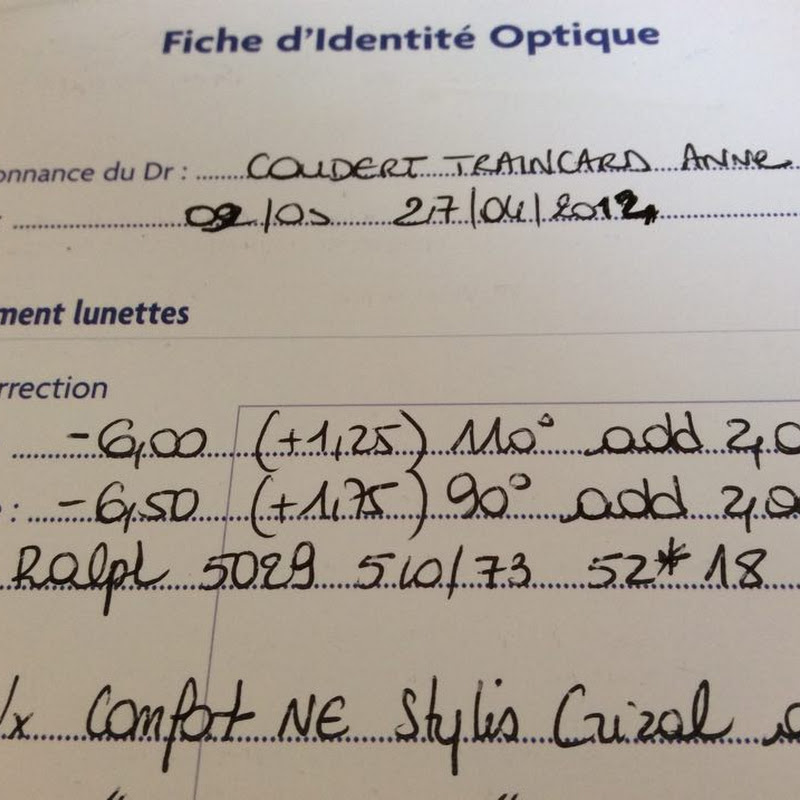 Fiche d'Identité Optique
onnance du Dr : COUDERT TRAINCARD ANNE
27/04/2012
ment lunettes
rrection
-6,00 (+1,25) 110° add 2,0
: -6,50 (+1,75) 90° add 2,0
Ralph 5029 510/73 52*18
Comfort NE Stylis Crizal